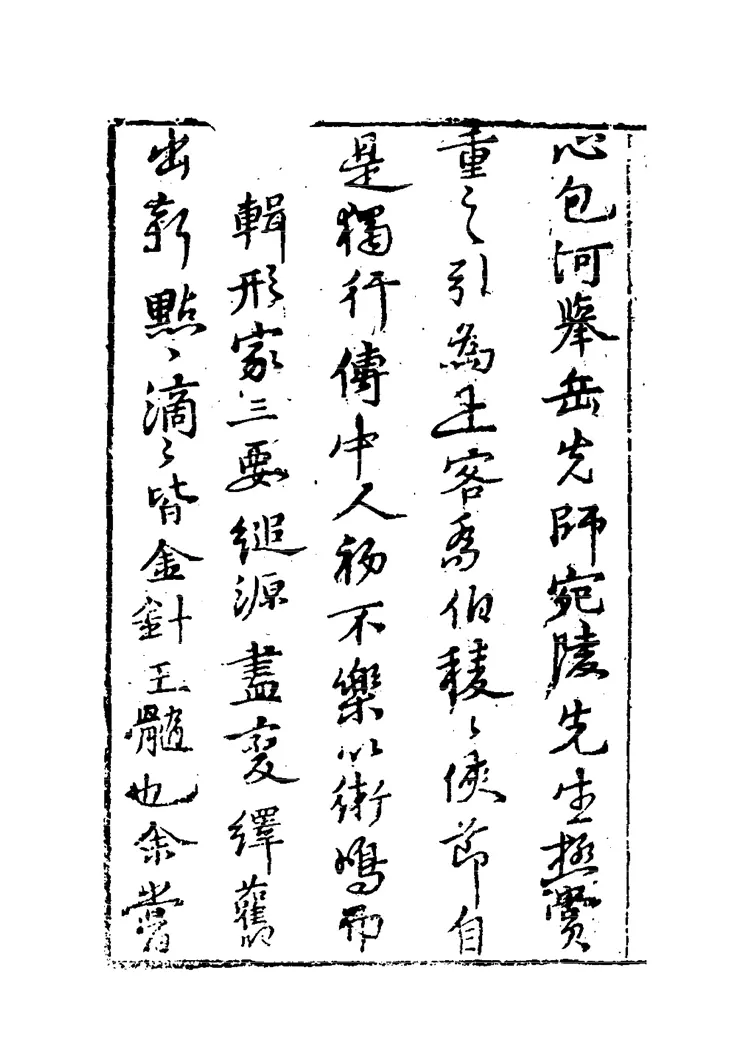 心包河擧岳先師宛陵先生極賓
重之引為上客喬伯稜〻俠節自
是獨行傳中人初不樂以術鳴而
輯形家三要縋源盡变繹舊
出新點〻滴〻皆金針玉髓也余嘗